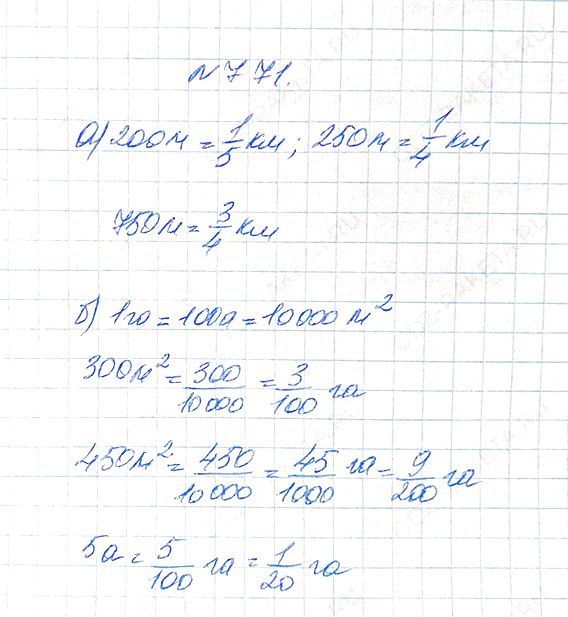 №771.
а) 200м = 1/5 км; 250м = 1/4 км
750м = 3/4 км
б) 1га = 100а = 10000 м²
300м² = 300/10000 = 3/100 га
450м² = 450/10000 = 45/1000 га = 9/200 га
5а = 5/100 га = 1/20 га